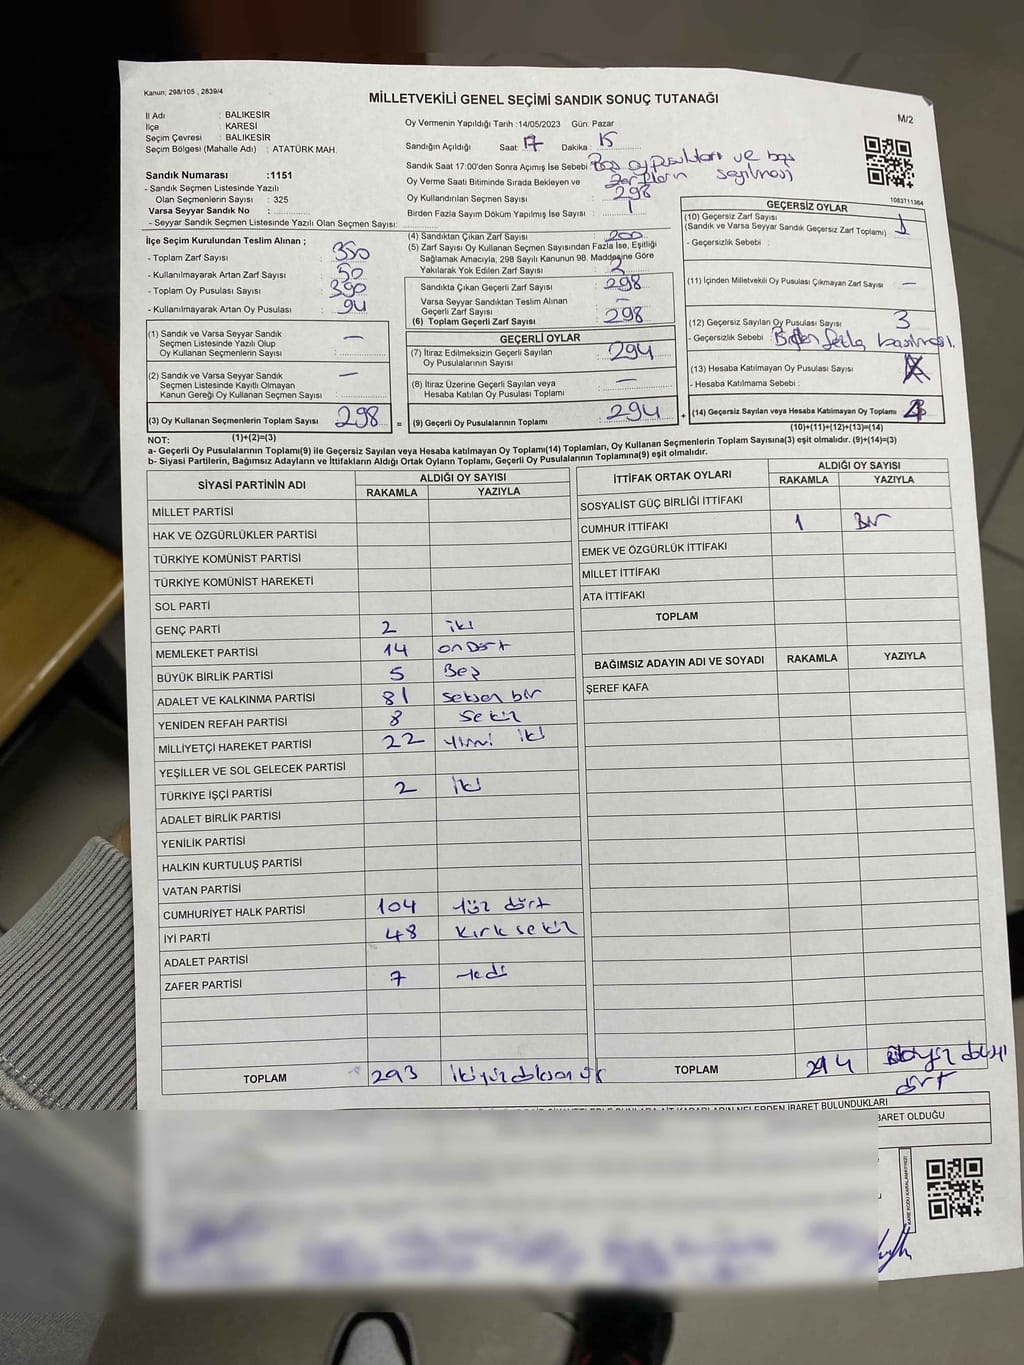 Kanun; 298/105 , 2839/4
MİLLETVEKİLİ GENEL SEÇİMİ SANDIK SONUÇ TUTANAĞI
M/2
İl Adı : BALIKESİR
İlçe : KARESİ
Seçim Çevresi : BALIKESİR
Seçim Bölgesi (Mahalle Adı) : ATATÜRK MAH.
Sandık Numarası :1151
- Sandık Seçmen Listesinde Yazılı
Olan Seçmenlerin Sayısı : 325
Varsa Seyyar Sandık No :
- Seyyar Sandık Seçmen Listesinde Yazılı Olan Seçmen Sayısı:
Oy Vermenin Yapıldığı Tarih :14/05/2023 Gün: Pazar
Sandığın Açıldığı Saat: 17 Dakika: 15
Sandık Saat 17:00'den Sonra Açımış İse Sebebi: Boş oy pusulaları ve boş
zarfların sayılması
Oy Verme Saati Bitiminde Sırada Bekleyen ve
Oy Kullandırılan Seçmen Sayısı : 298
Birden Fazla Sayım Döküm Yapılmış İse Sayısı : 1
1083711364
İlçe Seçim Kurulundan Teslim Alınan ;
- Toplam Zarf Sayısı : 350
- Kullanılmayarak Artan Zarf Sayısı : 50
- Toplam Oy Pusulası Sayısı : 390
- Kullanılmayarak Artan Oy Pusulası : 94
(1) Sandık ve Varsa Seyyar Sandık
Seçmen Listesinde Yazılı Olup
Oy Kullanan Seçmenlerin Sayısı : —
(2) Sandık ve Varsa Seyyar Sandık
Seçmen Listesinde Kayıtlı Olmayan
Kanun Gereği Oy Kullanan Seçmen Sayısı : —
(3) Oy Kullanan Seçmenlerin Toplam Sayısı : 298
(1)+(2)=(3)
(4) Sandıktan Çıkan Zarf Sayısı : 200
(5) Zarf Sayısı Oy Kullanan Seçmen Sayısından Fazla İse, Eşitliği
Sağlamak Amacıyla; 298 Sayılı Kanunun 98. Maddesine Göre
Yakılarak Yok Edilen Zarf Sayısı : 2
Sandıkta Çıkan Geçerli Zarf Sayısı : 298
Varsa Seyyar Sandıktan Teslim Alınan
Geçerli Zarf Sayısı : —
(6) Toplam Geçerli Zarf Sayısı : 298
GEÇERLİ OYLAR
(7) İtiraz Edilmeksizin Geçerli Sayılan
Oy Pusulalarının Sayısı : 294
(8) İtiraz Üzerine Geçerli Sayılan veya
Hesaba Katılan Oy Pusulası Toplamı : —
= (9) Geçerli Oy Pusulalarının Toplamı : 294 +
GEÇERSİZ OYLAR
(10) Geçersiz Zarf Sayısı
(Sandık ve Varsa Seyyar Sandık Geçersiz Zarf Toplamı) : 1
- Geçersizlik Sebebi :
(11) İçinden Milletvekili Oy Pusulası Çıkmayan Zarf Sayısı : —
(12) Geçersiz Sayılan Oy Pusulası Sayısı : 3
- Geçersizlik Sebebi : Birden fazla basılması.
(13) Hesaba Katılmayan Oy Pusulası Sayısı
- Hesaba Katılmama Sebebi :
(14) Geçersiz Sayılan veya Hesaba Katılmayan Oy Toplamı :
(10)+(11)+(12)+(13)=(14)
NOT:
a- Geçerli Oy Pusulalarının Toplamı(9) ile Geçersiz Sayılan veya Hesaba katılmayan Oy Toplamı(14) Toplamları, Oy Kullanan Seçmenlerin Toplam Sayısına(3) eşit olmalıdır. (9)+(14)=(3)
b- Siyasi Partilerin, Bağımsız Adayların ve İttifakların Aldığı Ortak Oyların Toplamı, Geçerli Oy Pusulalarının Toplamına(9) eşit olmalıdır.
SİYASİ PARTİNİN ADI
ALDIĞI OY SAYISI
RAKAMLA YAZIYLA
MİLLET PARTİSİ
HAK VE ÖZGÜRLÜKLER PARTİSİ
TÜRKİYE KOMÜNİST PARTİSİ
TÜRKİYE KOMÜNİST HAREKETİ
SOL PARTİ
GENÇ PARTİ 2 iki
MEMLEKET PARTİSİ 14 on Dört
BÜYÜK BİRLİK PARTİSİ 5 Beş
ADALET VE KALKINMA PARTİSİ 81 seksen bir
YENİDEN REFAH PARTİSİ 8 sekiz
MİLLİYETÇİ HAREKET PARTİSİ 22 yirmi iki
YEŞİLLER VE SOL GELECEK PARTİSİ
TÜRKİYE İŞÇİ PARTİSİ 2 iki
ADALET BİRLİK PARTİSİ
YENİLİK PARTİSİ
HALKIN KURTULUŞ PARTİSİ
VATAN PARTİSİ
CUMHURİYET HALK PARTİSİ 104 yüz dört
İYİ PARTİ 48 kırk sekiz
ADALET PARTİSİ
ZAFER PARTİSİ 7 yedi
TOPLAM 293 ikiyüz doksan üç
İTTİFAK ORTAK OYLARI
ALDIĞI OY SAYISI
RAKAMLA YAZIYLA
SOSYALİST GÜÇ BİRLİĞİ İTTİFAKI
CUMHUR İTTİFAKI 1 Bir
EMEK VE ÖZGÜRLÜK İTTİFAKI
MİLLET İTTİFAKI
ATA İTTİFAKI
TOPLAM
BAĞIMSIZ ADAYIN ADI VE SOYADI RAKAMLA YAZIYLA
ŞEREF KAFA
TOPLAM 294
dört
NELERDEN İBARET BULUNDUKLARI
BARET OLDUĞU